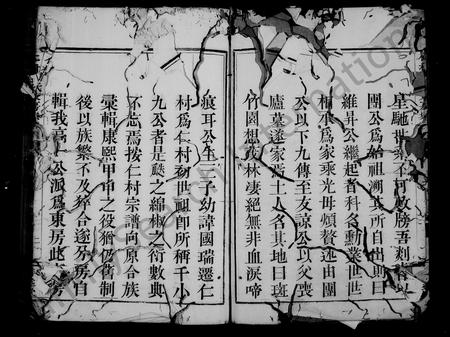 星馳世業不可枚勝吾
團公爲始祖溯其所自出則曰
維昇公繼起者科名勳業世世
相承爲家乘光毋煩贅述由團
公以下九傳至友諒公以父喪
廬墓遂家焉土人名其地曰斑
竹園想夜林凄絕無非血淚啼
痕耳公生二子幼諱國瑞遷仁
村爲仁村初世祖即所稱千小
九公者是瓞之綿椒之衍數典
不忘焉按仁村宗譜向原合族
彙輯康熙甲申之役猶仍舊制
後以族繁不及猝合遂分房自
輯我高一公派爲東房此